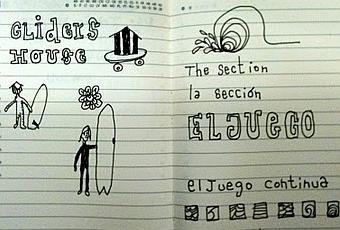 GLIDERS
HOUSE
The section
la sección
EL JUEGO
el Juego continua